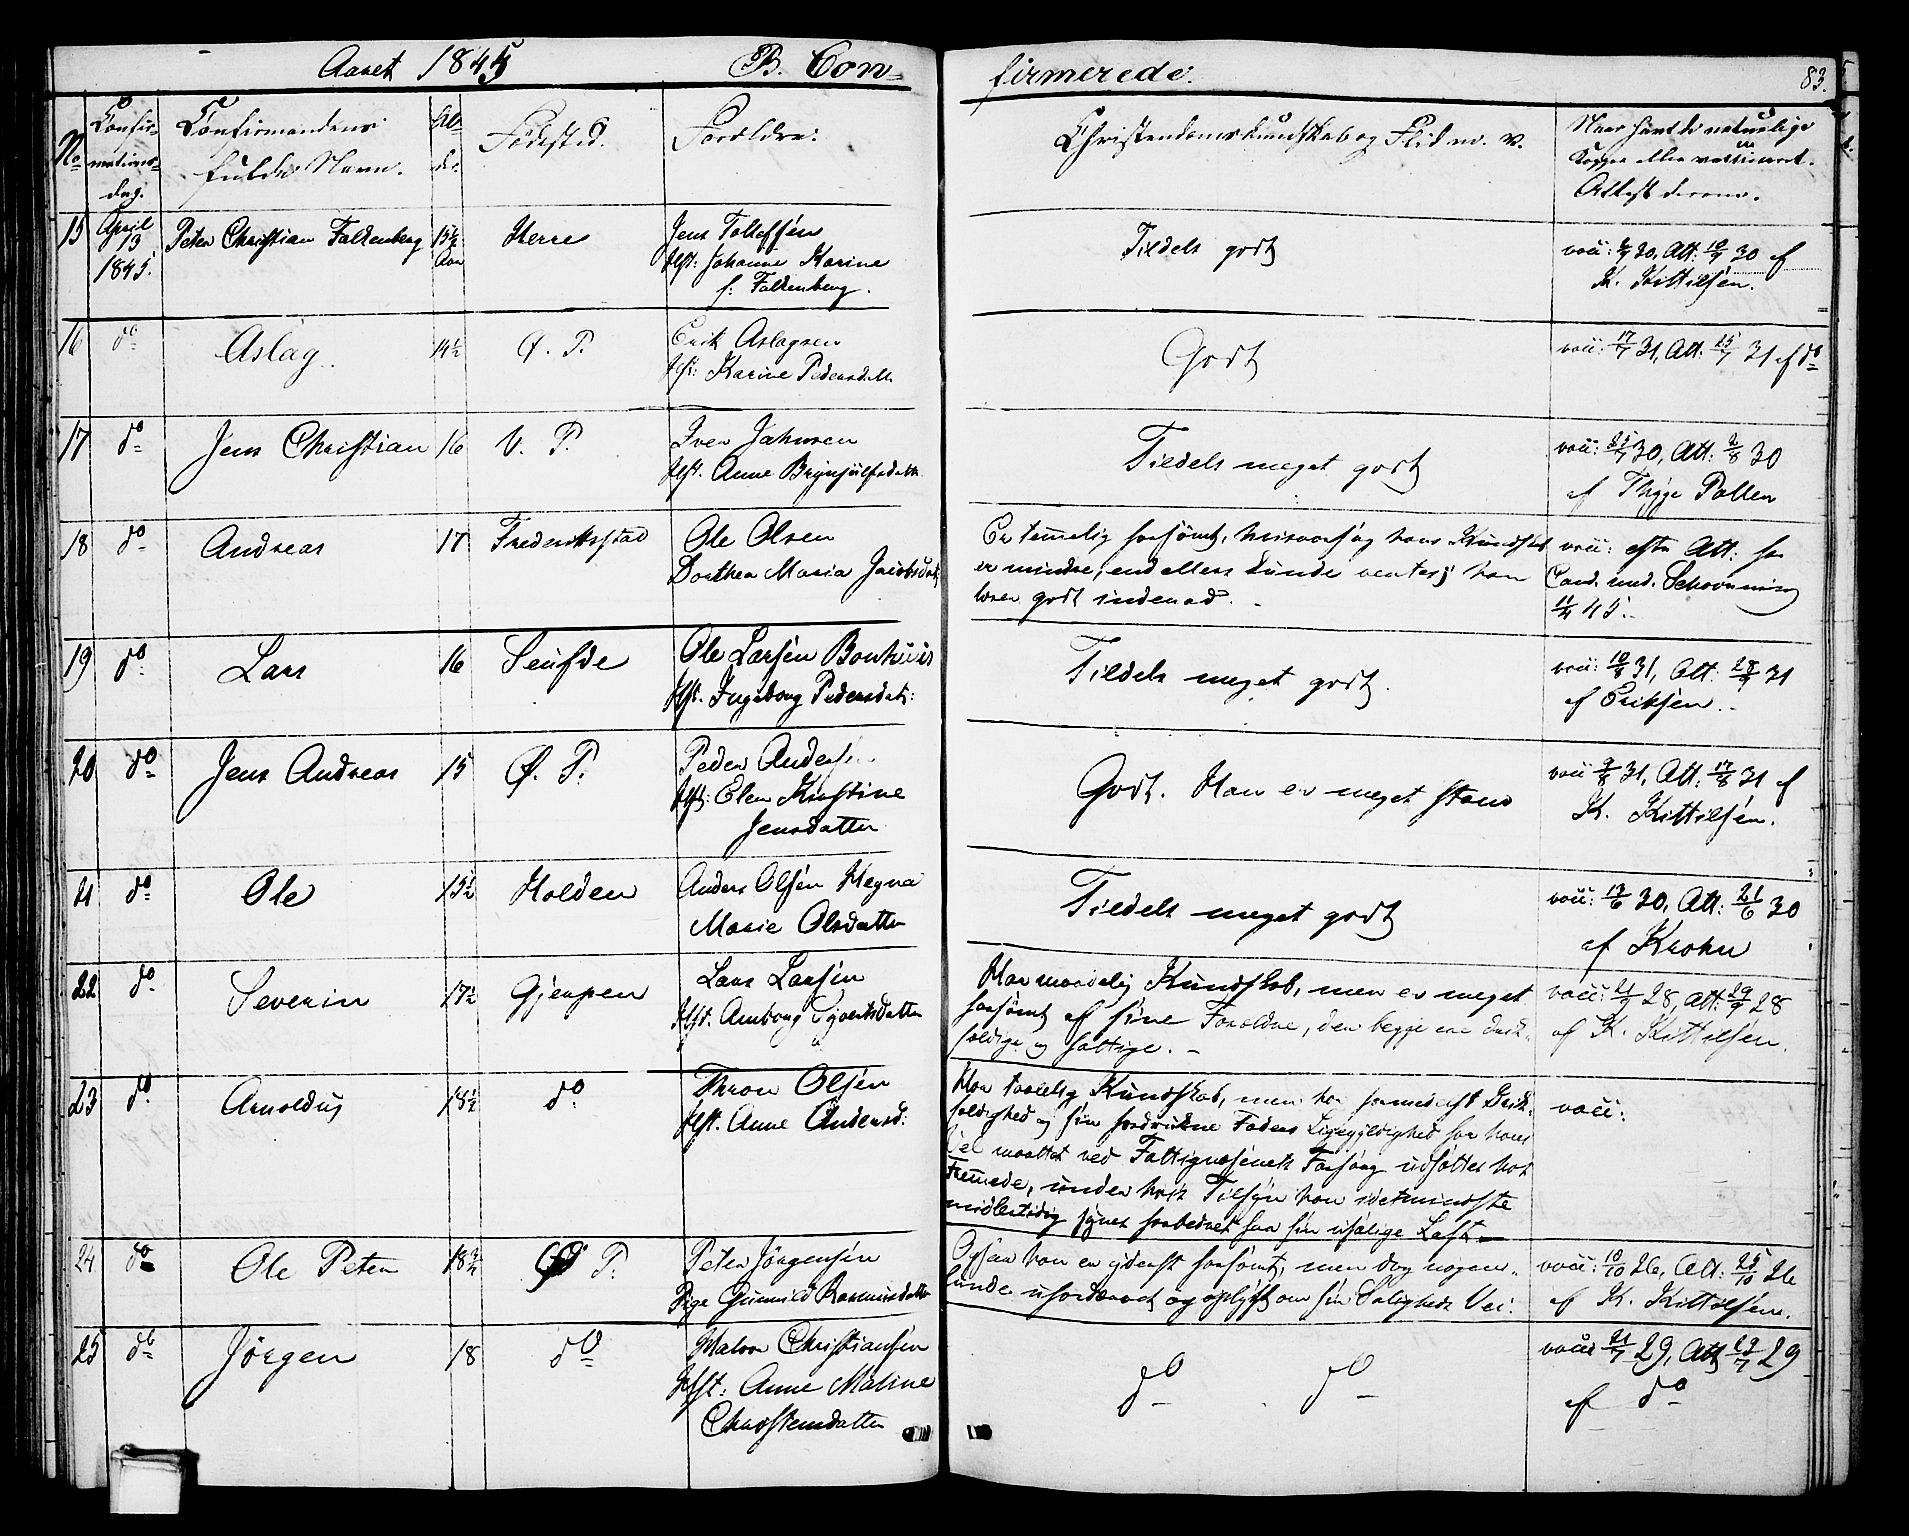 Aaret 1845 B. Con-
firmerede. 83.
No Confir-
mations-
dag. Confirmandens
fulde Navn. Al-
der. Fødested. Forældre.
Christendomskundskab og Flid m. v. Naar havt de naturlige
Kopper eller vaccineret.
Attest derom.
15 April
13
1845. Peter Christian Falkenberg 15½
Aar Herre Jens Tollefsen
Hst: Johanne Karine
f: Falkenberg. Tildels godt vacc: 30, Att: 30 af
K. Kittilsen.
16 do Aslag 14½ Ø. P. Erik Aslagsen
Hst: Karine Pedersdatt. Godt vacc: 17/7 31, Att: 25/7 31 af do
17 do Jens Christian 16 V. P. Iver Jahnsen
Hst. Anne Brynjulfsdatt. Tildels meget godt vacc: 25/7 30, Att: 2/8 30
af Thyge Pallen
18 do Andreas 17 Frederiksstad Ole Olsen
Dorthea Maria Jacobsdat. Er temmelig forsømt, hvisaarsag hans Kundskab
er mindre, end ellers kunde ventes; han
læser godt indenad. vacc: efter Att: fra
Cand. med. Schovmning
11/4 45.
19 do Lars 16 Seufde Ole Larsen Bonhuus
Hst. Ingeborg Pedersdat: Tildels meget godt. vacc: 31, Att: 31
af Eriksen.
20 do Jens Andreas 15 Ø. P. Peder Andersen
Hst: Elen Kirstine
Jensdatter Godt. Han er meget støvs vacc: 9/8 31, Att: 17/8 31 af
K. Kittilsen.
21 do Ole 15½ Holden Anders Olsen Hegna
Marie Olsdatter Tildels meget godt vacc: 13/6 30, Att: 21/6 30
af Krohn
22 do Severin 17½ Gjerpen Lars Larsen
Hst. Amborg Syvertsdatter Har maadelig Kundskab, men er meget
forsømt af sine Forældre, der begge ere drik-
fældige og fattige. vacc: 28, Att: 28
af K. Kittilsen.
23 do Arnoldus 18½ do Thron Olsen
Hst. Anne Andersd: Har taalelig Kundskab, men har formedelst Drik-
fældighed og sin fordrukne Faders Ligegyldighed for hans
Vel maattet ved Fattigvæsenets Forsørg udsættes hos
Fremmede, under hvis Tilsyn han idetmindste
midlertidig synes forbedret fra sin usalige Last vacc:
24 do Ole Peter 18¾ Ø P. Peter Jørgensen
Pige Gunnild Rasmusdatter Ogsaa han er yderst forsømt, men dog nogen-
lunde ufordærvet og oplyst om sin Saligheds Vei: vacc: 10/10 26, Att: 25/10 26
af K. Kittilsen.
25 do Jørgen 18 do Halvor Christiansen
Hst: Anne Maline
Christensdatter do do vacc: 21/7 29, Att 29/7 29
af do